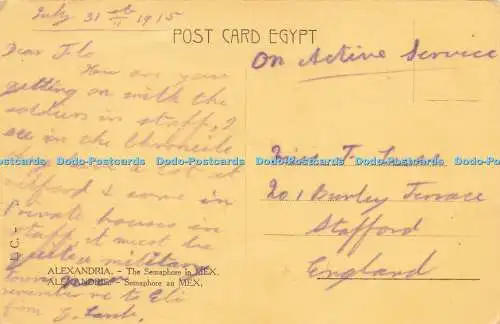 July 31st 1915
POST CARD EGYPT
On Active Service
Dear Flo
How are you
getting on with the
soldiers in staff, I
see in the Chronicle
they have a lot at
& some in
Private houses in
staff it must be
quite a military
town
remember me to Eli
from E. Lamb.
Miss F.
201 Burley Terrace
Stafford
England
L. C.
ALEXANDRIA. - The Semaphore in MEX.
ALEXANDRIE. - Semaphore au MEX.
Dodo-Postcards Dodo-Postcards Dodo-Postcards Dodo-Postcards Dodo-Postcards Dodo-Postcards